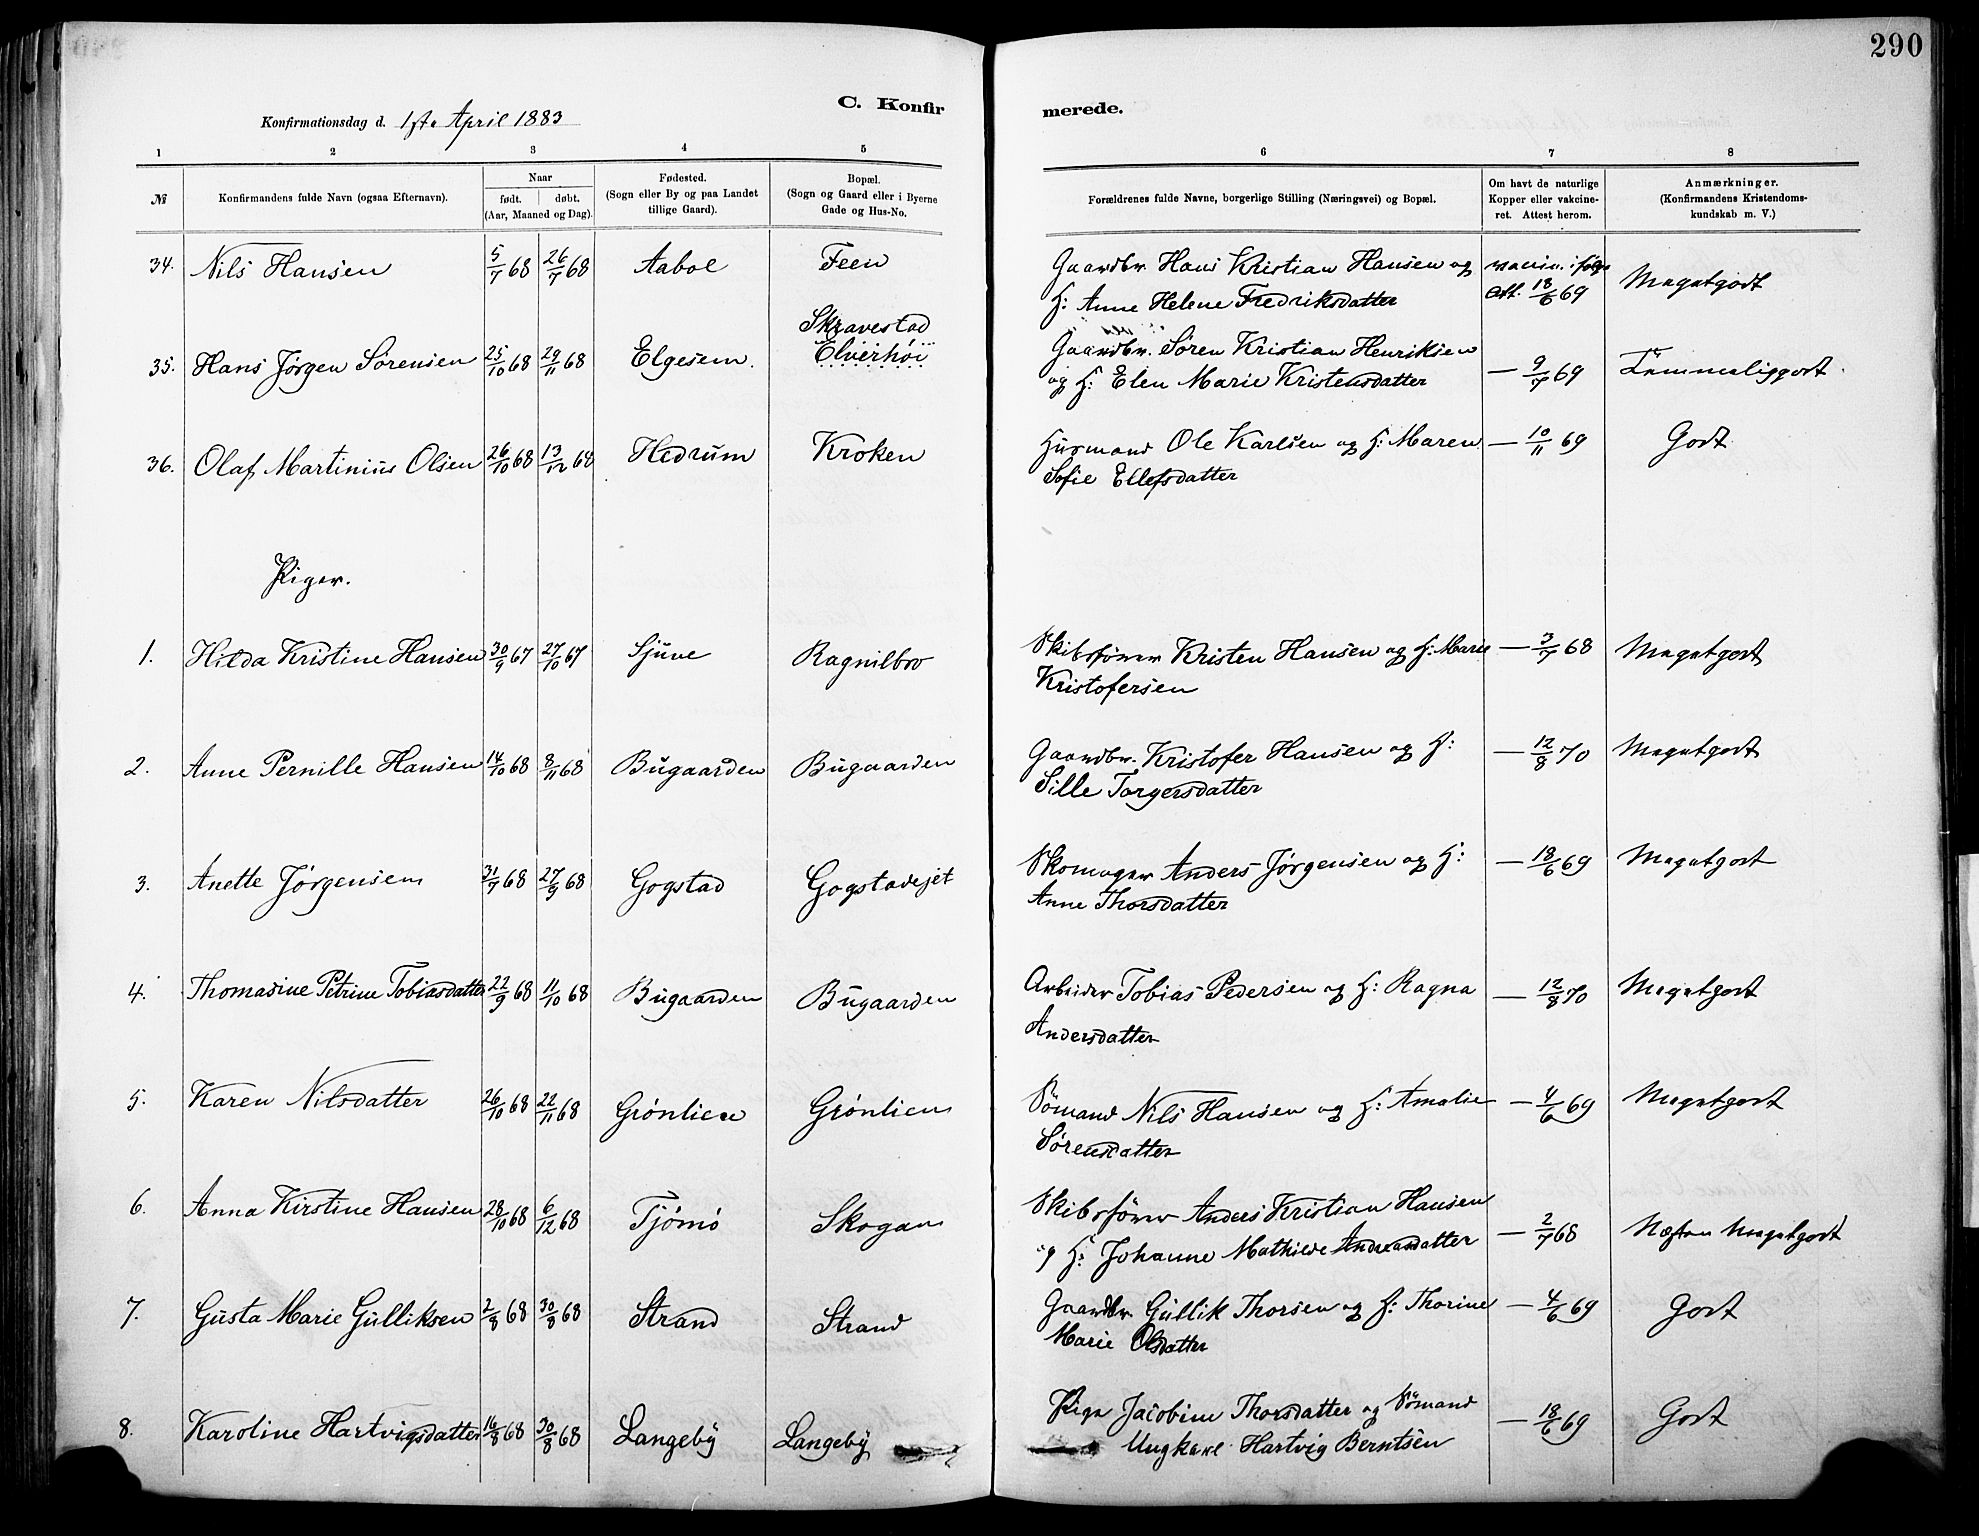 290
C. Konfirmerede.
Konfirmationsdag d. 1ste April 1883
1 2 3 4 5 6 7 8
№ Konfirmandens fulde Navn (ogsaa Efternavn). Naar født. døbt. (Aar, Maaned og Dag). Fødested. (Sogn eller By og paa Landet tillige Gaard). Bopæl. (Sogn og Gaard eller i Byerne Gade og Hus-No. Forældrenes fulde Navne, borgerlige Stilling (Næringsvei) og Bopæl. Om havt de naturlige Kopper eller vakcineret. Attest herom. Anmærkninger. (Konfirmandens Kristendomskundskab m. V.)
34. Nils Hansen 5/7 68 26/7 68 Aabol Feen Gaardbr. Hans Kristian Hansen og vaccin. i følge Megetgodt
H: Anne Helene Fredriksdatter Att. 18/6 69
Skravestad
35. Hans Jørgen Sørensen 25/10 68 29/11 68 Elgesem. Elverhøi Gaardbr. Søren Kristian Henriksen
og H: Elen Marie Kristensdatter — 9/7 69 Temmeliggodt.
36. Olaf Martinius Olsen 26/10 68 13/12 68 Hedrum Kroken Husmand Ole Karlsen og H: Maren — 10/11 69 Godt
Sofie Ellefsdatter
Piger.
1. Hilda Kristine Hansen 30/9 67 27/10 67 Sjuve Ragnilbro Skibsfører Kristen Hansen og H: Marie — 3/7 68 Megetgodt
Kristofersen
2. Anne Pernille Hansen 14/10 68 8/11 68 Bugaarden Bugaarden Gaardbr. Kristofer Hansen og H: — 12/8 70 Megetgodt
Sille Torgersdatter
3. Anette Jørgensen 31/7 68 27/9 68 Gogstad Gogstadejet Skomager Anders Jørgensen og H: — 18/6 69 Megetgodt
Anne Thorsdatter
4. Thomasine Petrine Tobiasdatter 22/9 68 11/10 68 Bugaarden Bugaarden Arbeider Tobias Pedersen og H: Ragna — 12/8 70 Megetgodt
Andersdatter
5. Karen Nilsdatter 26/10 68 22/11 68 Grønlien Grønlien Sømand Nils Hansen og H: Amalie — 4/6 69 Megetgodt
Sørensdatter
6. Anna Kirstine Hansen 28/10 68 6/12 68 Tjømø Skogan Skibsfører Anders Kristian Hansen
og H: Johanne Mathilde Andreasdatter — 2/7 68 Næsten Megetgodt
7. Gusta Marie Gulliksen 2/8 68 30/8 68 Strand Strand Gaardbr. Gullik Thorsen og H: Thorine — 4/6 69 Godt
Marie Olsdatter
8. Karoline Hartvigsdatter 16/8 68 30/8 68 Langeby Langeby Pige Jacobine Thorsdatter og Sømand — 18/6 69 Godt
Ungkarl Hartvig Berntsen